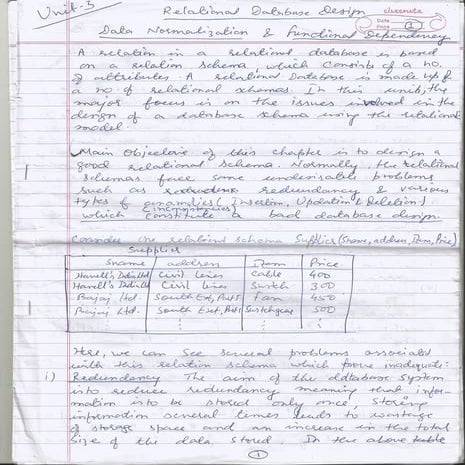 Unit-3 Relational Database Design
classmate
Date
Page 1
Data Normalization & Functional Dependency
A relation in a relational database is based
on a relation schema, which consists of a no.
of attributes. A relational Database is made up of
a no. of relational schemas. In this unit, the
major focus is on the issues involved in the
design of a database schema using the relational
model.
Main Objective of this chapter is to design a
good relational schema. Normally, the relational
schemas face some undesirable problems
such as redundancy & various
types of anomalies (Insertion, Updation & Deletion)
inconsistencies
which constitute a bad database design.
Consider one relational schema Supplier (Sname, address, Item, Price)
Supplier
Sname address Item Price
Havell's India Ltd Civil Lines Cable 400
Havell's India Ltd Civil Lines Switch 300
Bajaj Ltd. South Ext, Part I Fan 450
Bajaj Ltd. South Ext, Part I Switchgear 500
Here, we can see several problems associated
with this relation schema which prove inadequate:
i) Redundancy The aim of the database system
is to reduce redundancy meaning that infor-
mation is to be stored only once, Storing
information several times leads to wastage
of storage space and an increase in the total
size of the data stored. In the above table
1